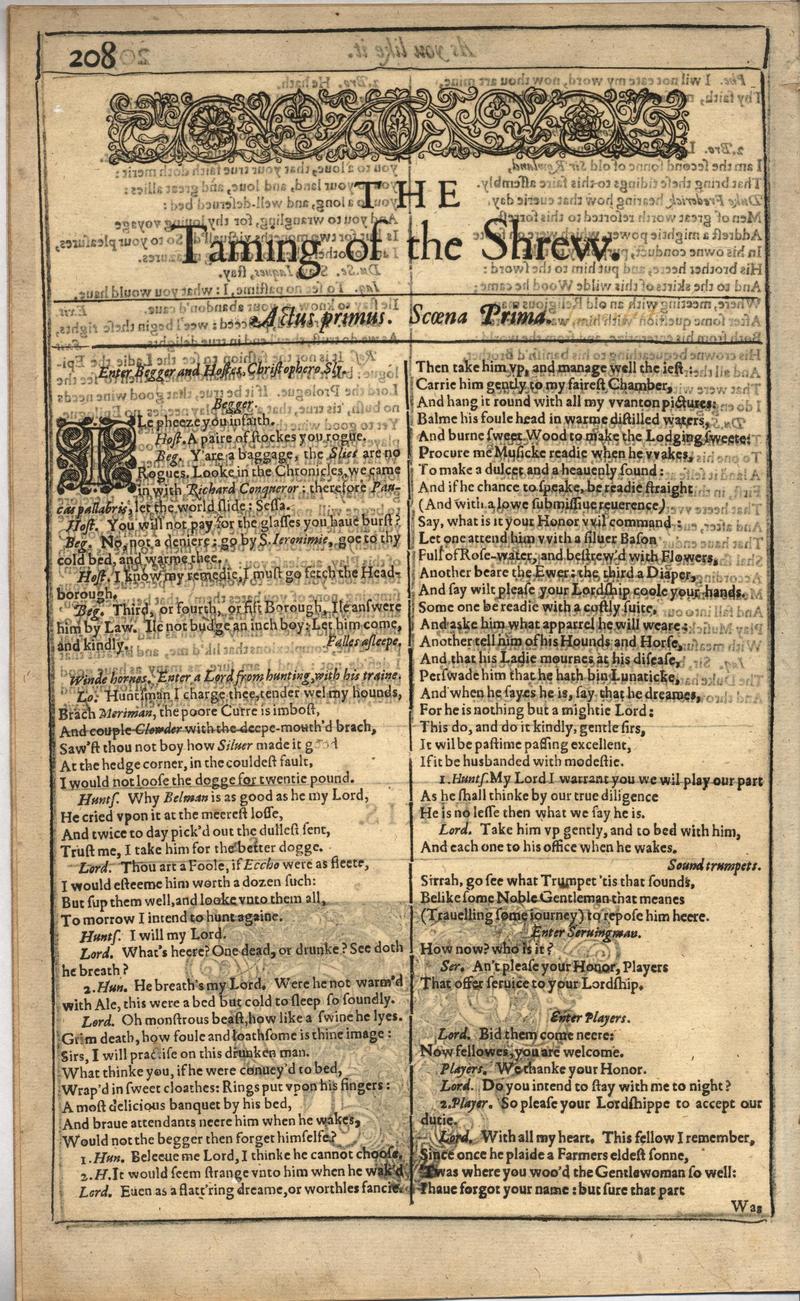 208
THE
Taming of the Shrew.
Actus primus. Scœna Prima.
Enter Begger and Hostes, Christophero Sly.
Begger.
Ile pheeze you infaith.
Host. A paire of stockes you rogue.
Beg. Y'are a baggage, the Slies are no
Rogues. Looke in the Chronicles, we came
in with Richard Conqueror: therefore Pau-
cas pallabris, let the world slide: Sessa.
Host. You will not pay for the glasses you haue burst?
Beg. No, not a deniere: go by S. Ieronimie, goe to thy
cold bed, and warme thee.
Host. I know my remedie, I must go fetch the Head-
borough.
Beg. Third, or fourth, or fift Borough, Ile answere
him by Law. Ile not budge an inch boy: Let him come,
and kindly. Falles asleepe.
Winde hornes. Enter a Lord from hunting, with his traine.
Lo. Huntsman I charge thee, tender wel my hounds,
Brach Meriman, the poore Curre is imbost,
And couple Clowder with the deepe-mouth'd brach,
Saw'st thou not boy how Siluer made it good
At the hedge corner, in the couldest fault,
I would not loose the dogge for twentie pound.
Hunts. Why Belman is as good as he my Lord,
He cried vpon it at the meerest losse,
And twice to day pick'd out the dullest sent,
Trust me, I take him for the better dogge.
Lord. Thou art a Foole, if Eccho were as fleete,
I would esteeme him worth a dozen such:
But sup them well, and looke vnto them all,
To morrow I intend to hunt againe.
Hunts. I will my Lord.
Lord. What's heere? One dead, or drunke? See doth
he breath?
2. Hun. He breath's my Lord. Were he not warm'd
with Ale, this were a bed but cold to sleep so soundly.
Lord. Oh monstrous beast, how like a swine he lyes.
Grim death, how foule and loathsome is thine image:
Sirs, I will practise on this drunken man.
What thinke you, if he were conuey'd to bed,
Wrap'd in sweet cloathes: Rings put vpon his fingers:
A most delicious banquet by his bed,
And braue attendants neere him when he wakes,
Would not the begger then forget himselfe?
1. Hun. Beleeue me Lord, I thinke he cannot choose.
2. H. It would seem strange vnto him when he wak'd
Lord. Euen as a flatt'ring dreame, or worthles fancie.
Then take him vp, and manage well the iest:
Carrie him gently to my fairest Chamber,
And hang it round with all my vvanton pictures:
Balme his foule head in warme distilled waters,
And burne sweet Wood to make the Lodging sweete:
Procure me Musicke readie when he vvakes,
To make a dulcet and a heauenly sound:
And if he chance to speake, be readie straight
(And with a lowe submissiue reuerence)
Say, what is it your Honor vvil command:
Let one attend him vvith a siluer Bason
Full of Rose-water, and bestrew'd with Flowers,
Another beare the Ewer: the third a Diaper,
And say wilt please your Lordship coole your hands.
Some one be readie with a costly suite,
And aske him what apparrel he will weare:
Another tell him of his Hounds and Horse,
And that his Ladie mournes at his disease,
Perswade him that he hath bin Lunaticke,
And when he sayes he is, say that he dreames,
For he is nothing but a mightie Lord:
This do, and do it kindly, gentle sirs,
It wil be pastime passing excellent,
If it be husbanded with modestie.
1. Hunts. My Lord I warrant you we wil play our part
As he shall thinke by our true diligence
He is no lesse then what we say he is.
Lord. Take him vp gently, and to bed with him,
And each one to his office when he wakes.
Sound trumpets.
Sirrah, go see what Trumpet 'tis that sounds,
Belike some Noble Gentleman that meanes
(Trauelling some iourney) to repose him heere.
Enter Seruingman.
How now? who is it?
Ser. An't please your Honor, Players
That offer seruice to your Lordship.
Enter Players.
Lord. Bid them come neere:
Now fellowes, you are welcome.
Players. We thanke your Honor.
Lord. Do you intend to stay with me to night?
2. Player. So please your Lordshippe to accept our
dutie.
Lord. With all my heart. This fellow I remember,
Since once he plaide a Farmers eldest sonne,
'Twas where you woo'd the Gentlewoman so well:
I haue forgot your name: but sure that part
Was